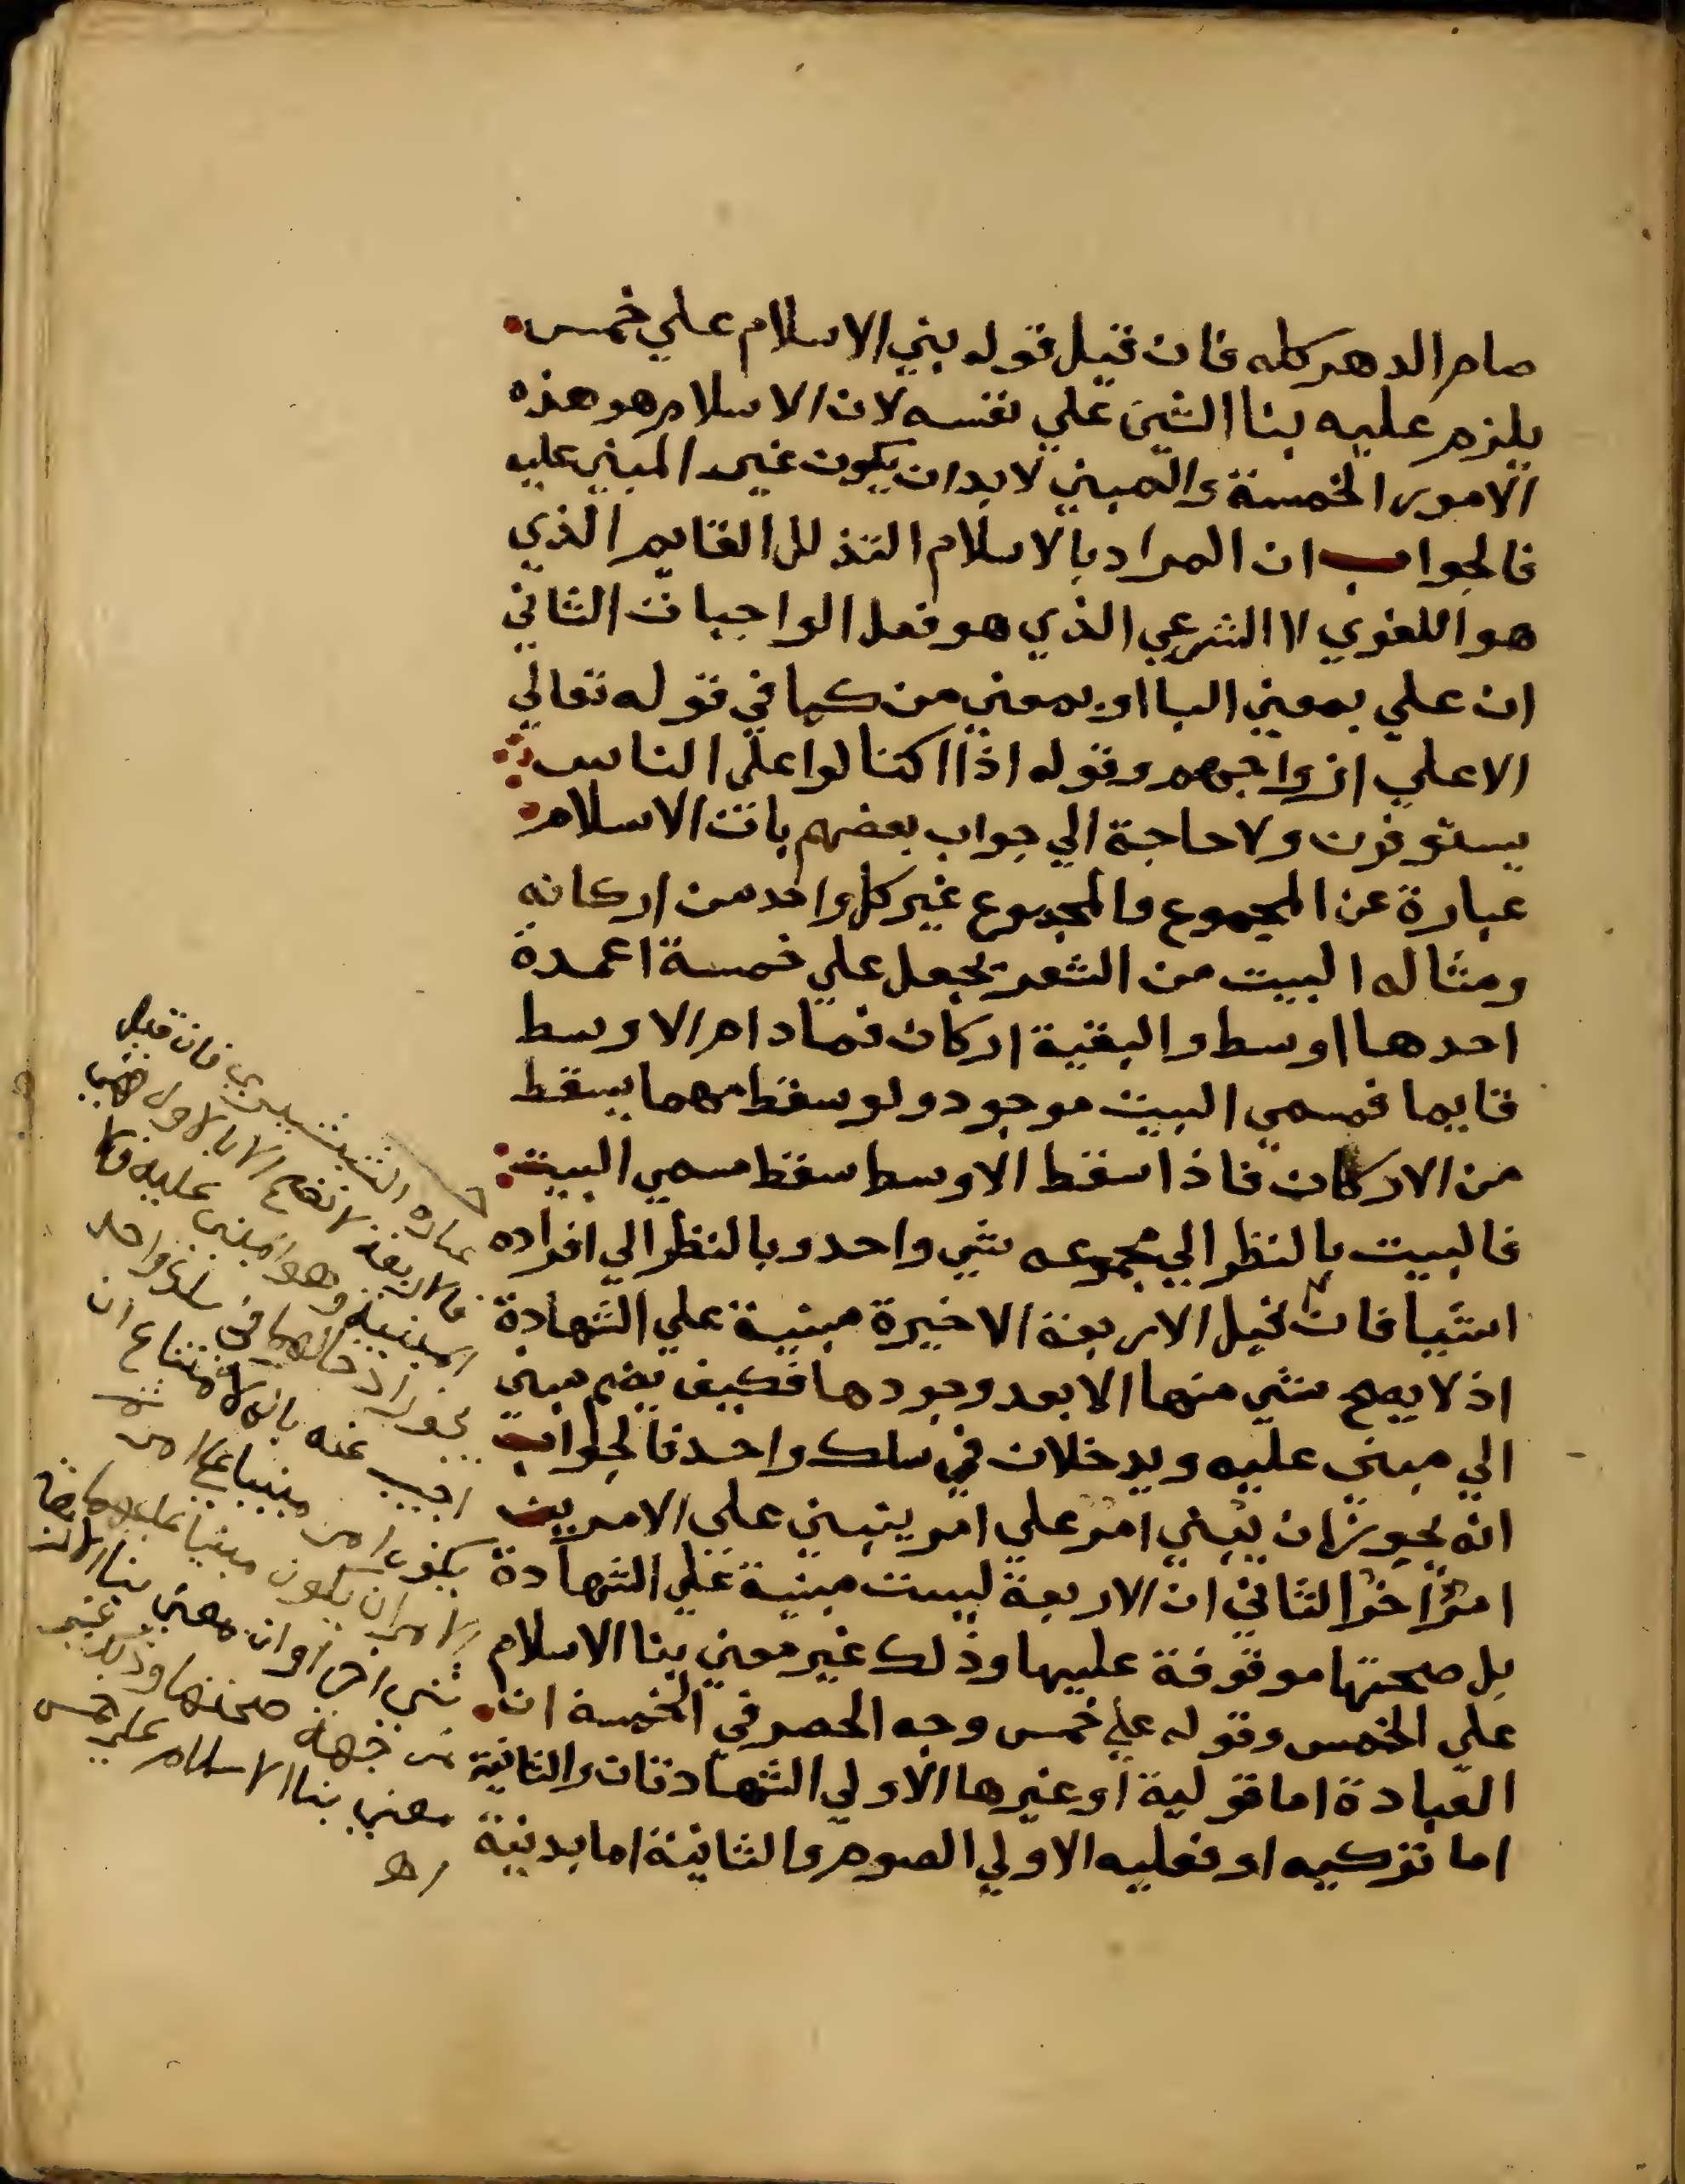 صام الدهر كله فان قيل قوله بني الاسلام علي خمس
يلزم عليه بنا الشي علي نفسه لان الاسلام هو هذه
الامور الخمسة والمبني لابد ان يكون غير المبني عليه
فالجواب ان المراد بالاسلام التذلل القايم الذي
هو اللغوي لا الشرعي الذي هو فعل الواجبات الثاني
ان علي بمعني البا او بمعني من كما في قوله تعالي
الا علي ازواجهم وقوله اذا اكتالوا علي الناس
يستوفون ولا حاجة الي جواب بعضهم بان الاسلام
عبارة عن المجموع والمجموع غير كل واحد من اركانه
ومثاله البيت من الشعر يجعل علي خمسة اعمدة
احدها اوسط والبقية اركان فمادام الاوسط
قايما فمسمي البيت موجود ولو سقط مهما يسقط
من الاركان فاذا سقط الاوسط سقط مسمي البيت
فالبيت بالنظر الي مجموعه شي واحد وبالنظر الي افراده
اشيا فان قيل الاربعة الاخيرة مبنية علي الشهادة
اذ لا يصح شي منها الا بعد وجودها فكيف يضم مبني
الي مبني عليه ويدخلان في سلك واحد فالجواب
انه يجوز ان يبني امر علي امر يبني علي الامرين
امر اخر الثاني ان الاربعة ليست مبنية علي الشهادة
بل صحتها موقوفة عليها وذلك غير معني بنا الاسلام
علي الخمس وقوله علي خمس وجه الحصر في الخمسة ان
العبادة اما قولية او غيرها الاولي الشهادتان والثانية
اما تركيه او فعليه الاولي الصوم والثانية اما بدنية
عبارة الشبشيري فان قيل
فالاربعة لا تصح الا بالاول فهي
المبنية وهو المبني عليه فلا
يجوز ادخالهما في سلك واحد
اجيب عنه بانه لا امتناع ان
يكون امر مبنيا علي امر ثم
الامران يكون مبنيا عليهما
شي اخر او ان معني بنا
من جهة صحتها وذلك غير
معني بنا الاسلام علي خمس
اهـ